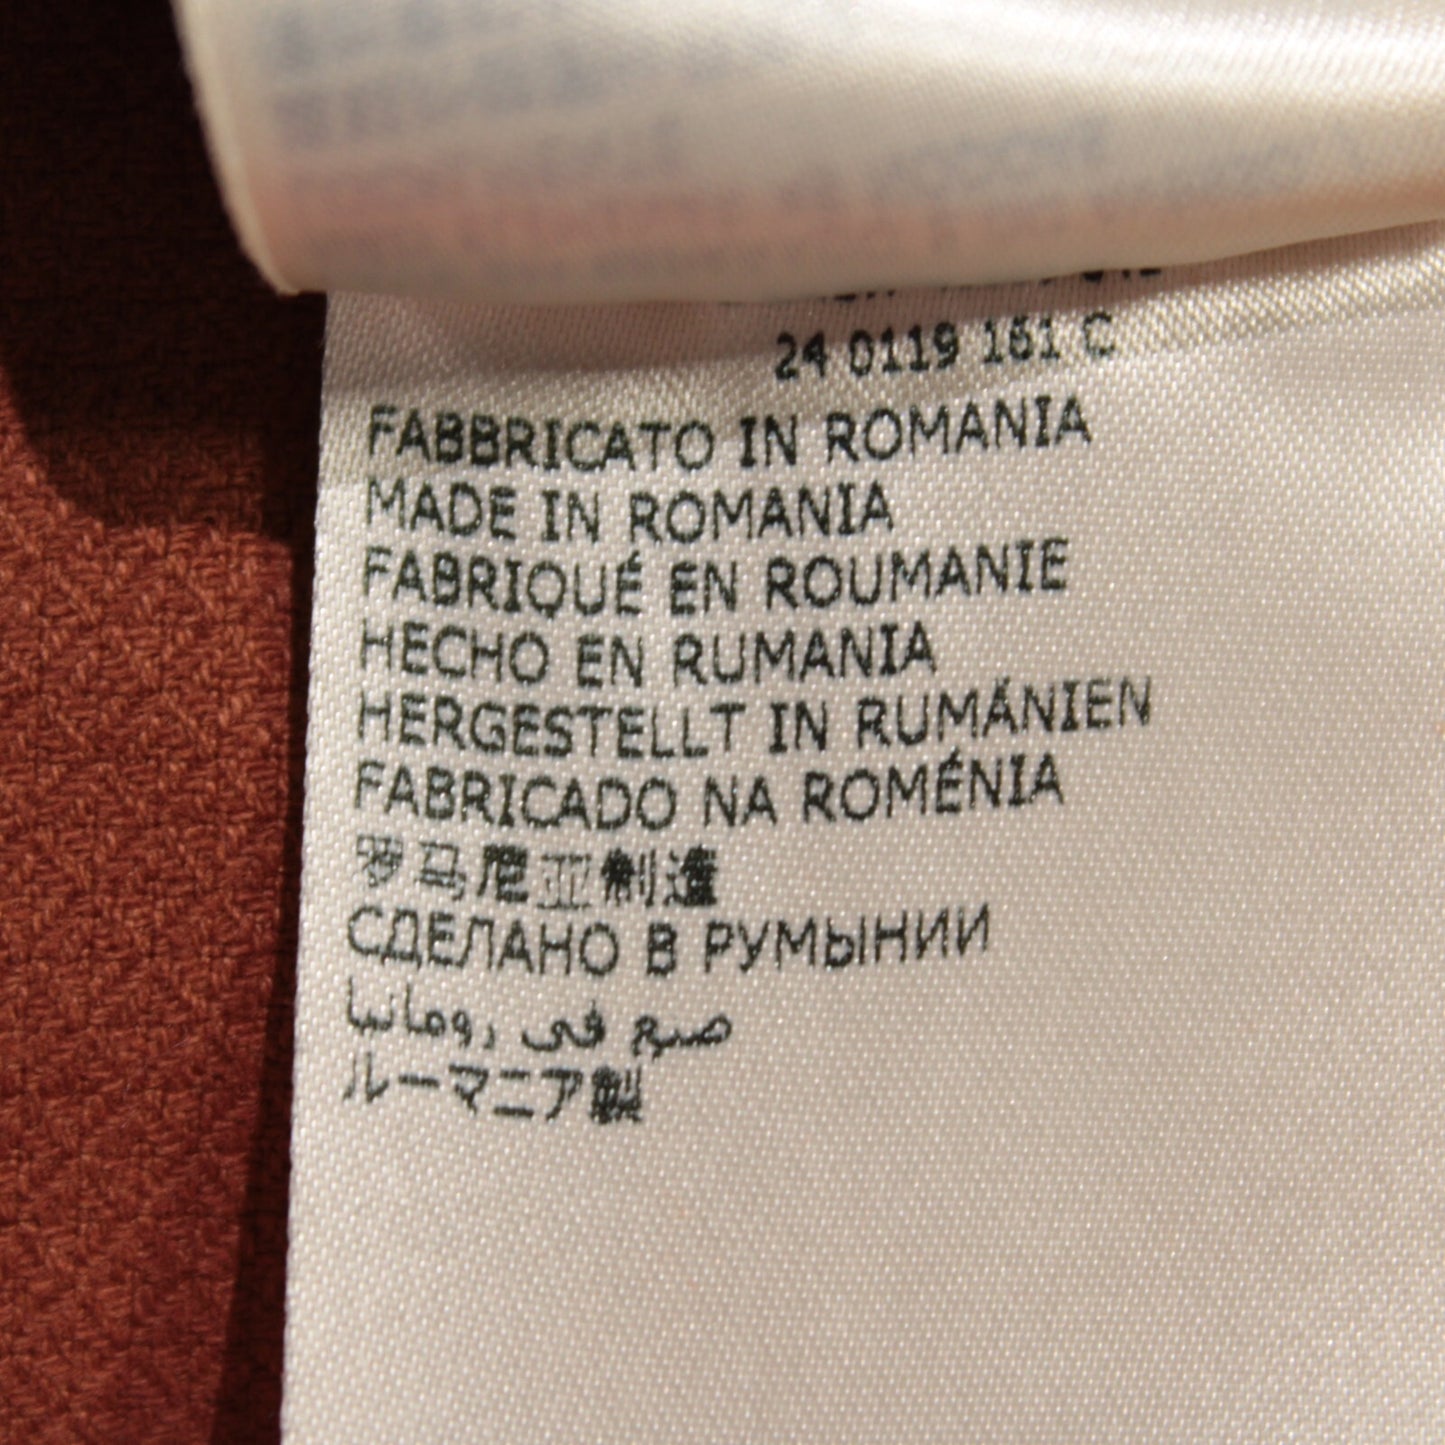 24 0119 161 C
FABBRICATO IN ROMANIA
MADE IN ROMANIA
FABRIQUÉ EN ROUMANIE
HECHO EN RUMANIA
HERGESTELLT IN RUMÁNIEN
FABRICADO NA ROMÉNIA
罗马尼亚制造
СДЕЛАНО В РУМЫНИИ
صبع في رومانيا
ルーマニア製